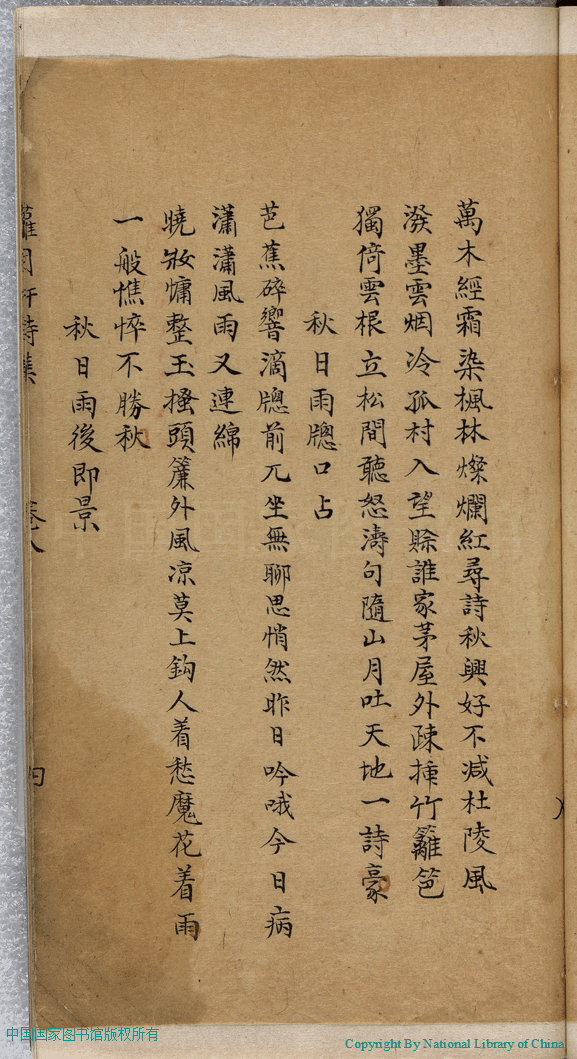 萬木經霜染楓林燦爛紅尋詩秋興好不減杜陵風
潑墨雲烟冷孤村入望賒誰家茅屋外疎插竹籬笆
獨倚雲根立松間聽怒濤句隨山月吐天地一詩豪
秋日雨牕口占
芭蕉碎響滴牕前兀坐無聊思悄然昨日吟哦今日病
瀟瀟風雨又連綿
曉妝慵整玉搔頭簾外風凉莫上鈎人着愁魔花着雨
一般憔悴不勝秋
秋日雨後即景
詩集
中国国家图书馆版权所有
Copyright By National Library of China